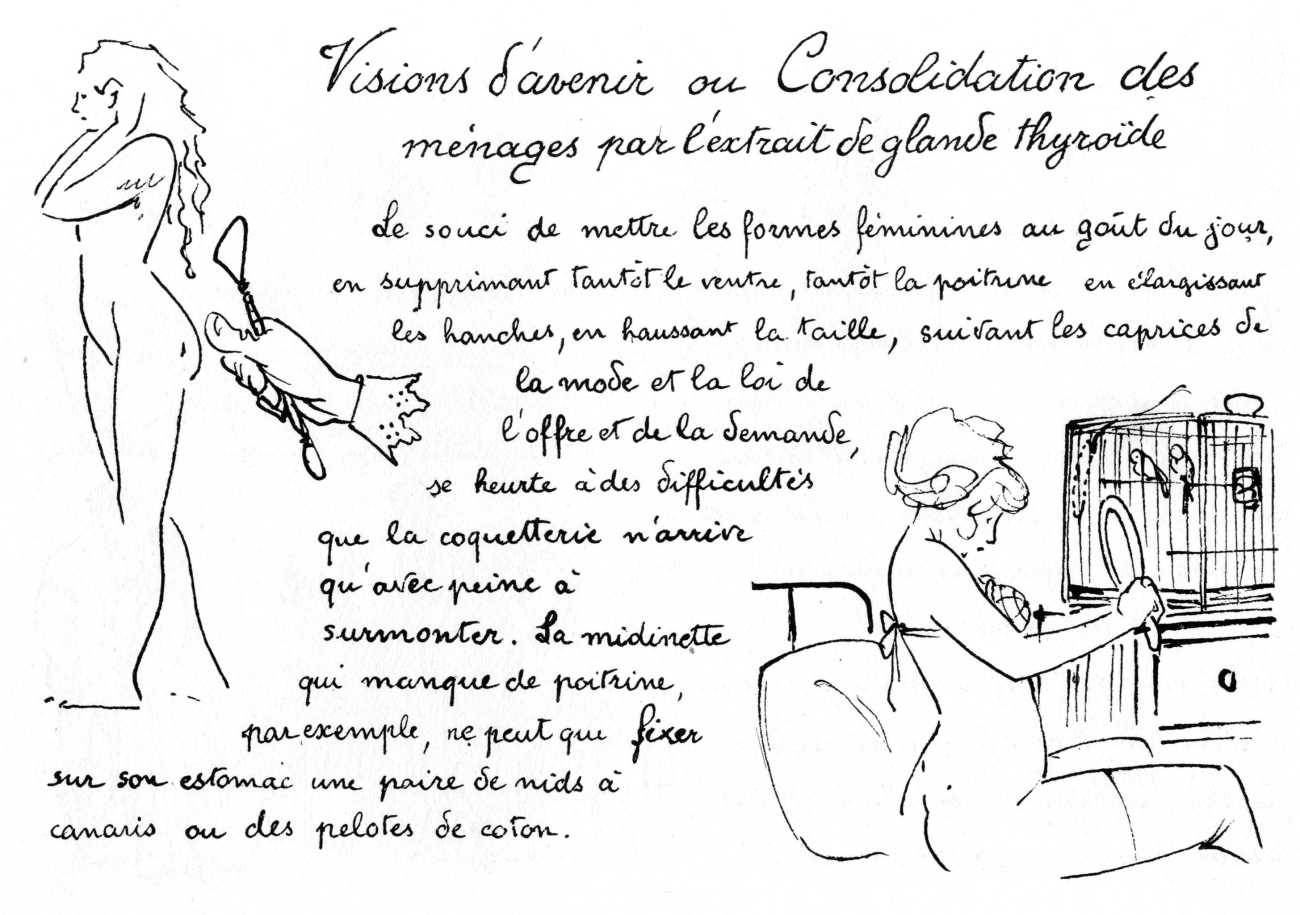 Visions d'avenir ou Consolidation des
ménages par l'éxtrait de glande thyroïde
Le souci de mettre les formes féminines au goût du jour,
en supprimant tantôt le ventre, tantôt la poitrine en élargissant
les hanches, en haussant la taille, suivant les caprices de
la mode et la loi de
l'offre et de la demande,
se heurte à des difficultés
que la coquetterie n'arrive
qu'avec peine à
surmonter. La midinette
qui manque de poitrine,
par exemple, ne peut que fixer
sur son estomac une paire de nids à
canaris ou des pelotes de coton.